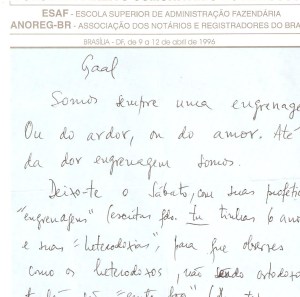 ESAF - ESCOLA SUPERIOR DE ADMINISTRAÇÃO FAZENDÁRIA
ANOREG-BR - ASSOCIAÇÃO DOS NOTÁRIOS E REGISTRADORES DO BRA
BRASÍLIA - DF, de 9 a 12 de abril de 1996
Gaal
Somos sempre uma engrenage
Ou do ardor, ou do amor. Até
da dor engrenagem somos.
Deixo-te o Sábato, com suas profética
"engrenagens" (escritas qdo. tu tinhas 6 ano
e suas "heterodoxias", para que observes
como os heterodoxos, não sendo ortodoxo